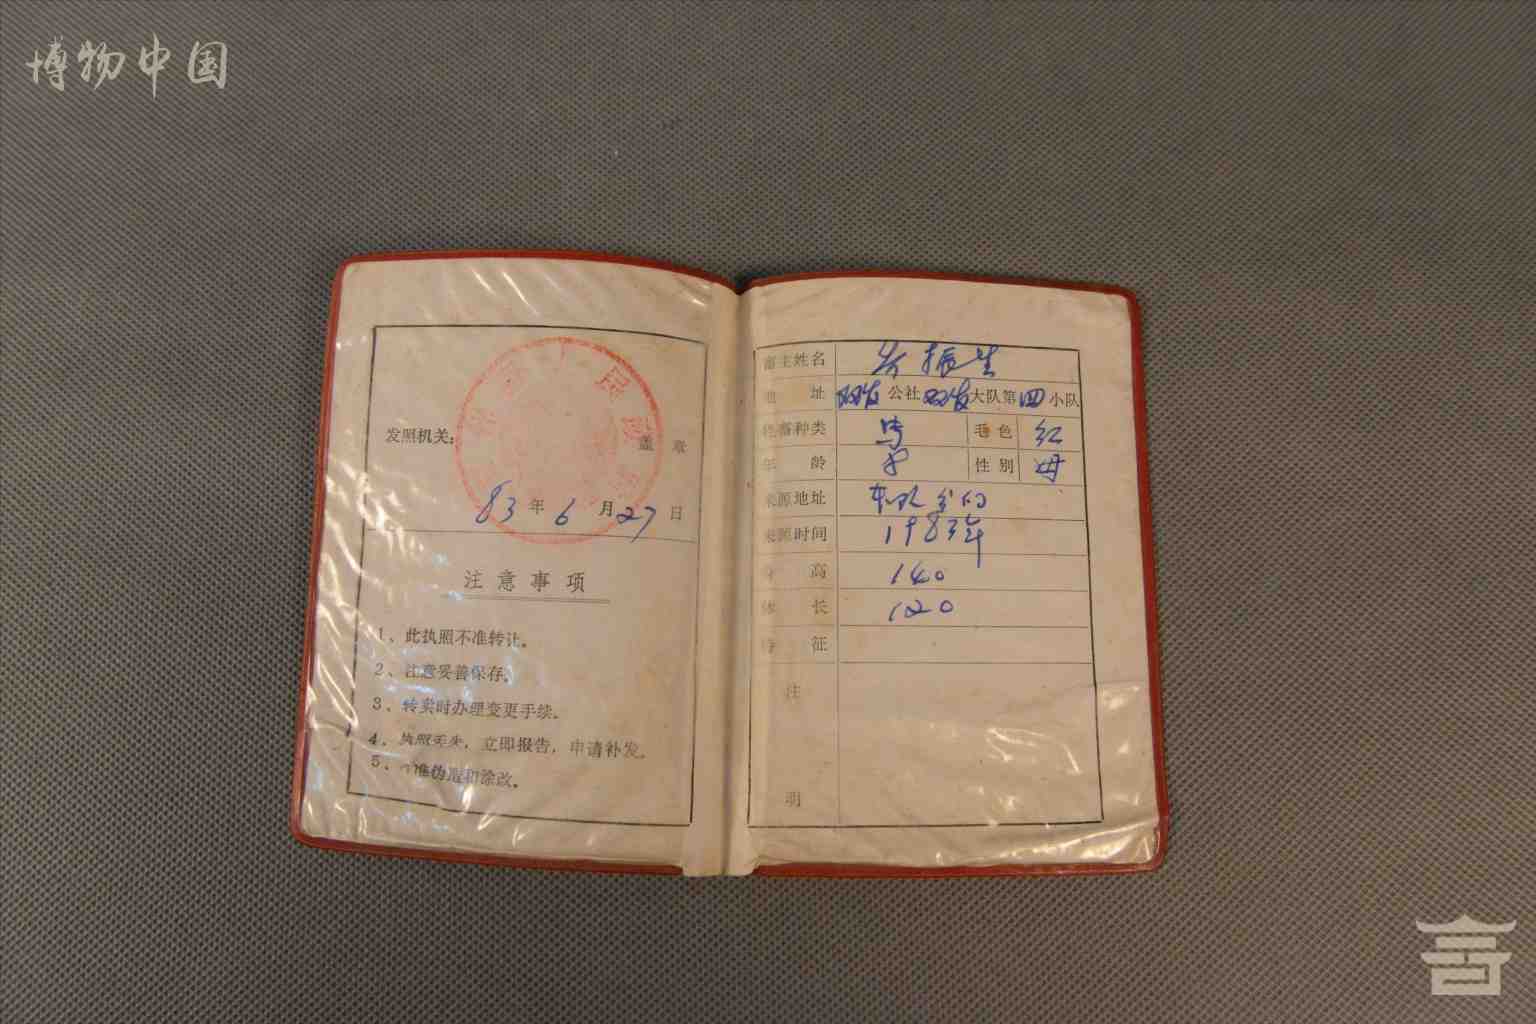 博物中国
发照机关：盖章
83年6月27日
注意事项
1、此执照不准转让。
2、注意妥善保存。
3、转卖时办理变更手续。
4、执照丢失，立即报告，申请补发。
5、不准伪造和涂改。
畜主姓名 振生
地址 双发公社双发大队第四小队
牲畜种类 马 毛色 红
年龄 性别 母
来源地址 本队分的
来源时间 1983年
身高 140
体长 120
特征
注明